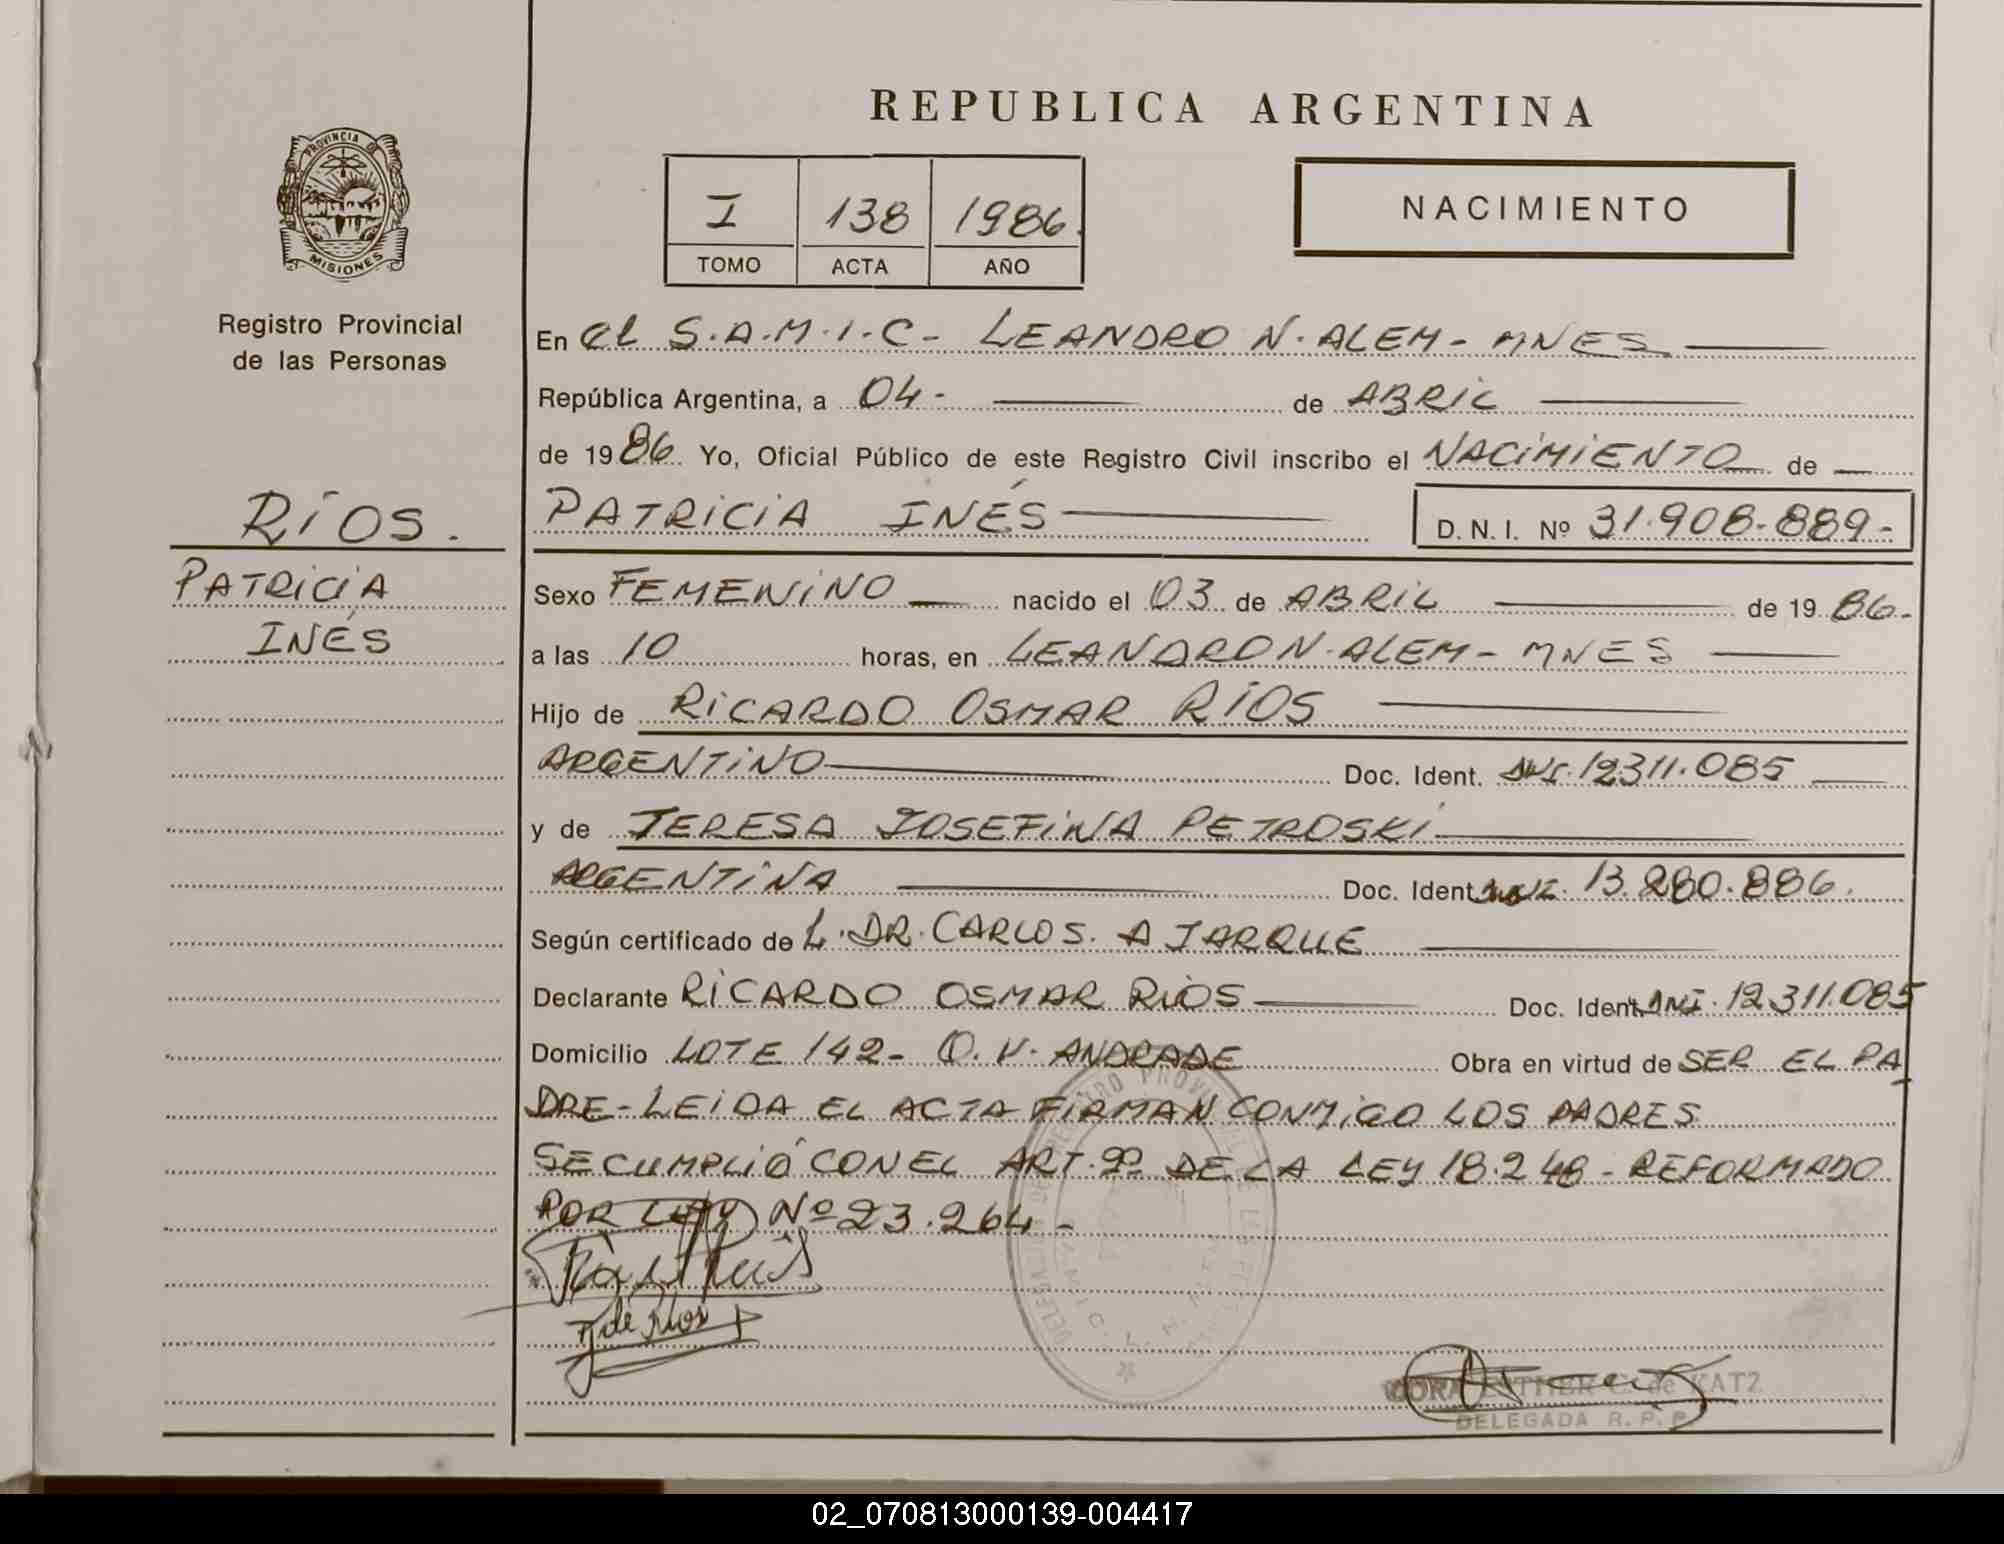 REPUBLICA ARGENTINA
PROVINCIA DE
MISIONES
Registro Provincial
de las Personas
I 138 1986.
TOMO ACTA AÑO
NACIMIENTO
En el S.A.M.I.C - LEANDRO N. ALEM - MNES
República Argentina, a 04 - de ABRIL
de 1986. Yo, Oficial Público de este Registro Civil inscribo el NACIMIENTO de
RÍOS.
PATRICIA
INÉS
PATRICIA INÉS D. N. I. Nº 31.908.889-
Sexo FEMENINO nacido el 03 de ABRIL de 1986.
a las 10 horas, en LEANDRO N. ALEM - MNES
Hijo de RICARDO OSMAR RÍOS
ARGENTINO Doc. Ident. DNI. 12.311.085
y de TERESA JOSEFINA PETROSKI
ARGENTINA Doc. Ident. 13.280.886.
Según certificado de L. DR. CARLOS. A JARQUE
Declarante RICARDO OSMAR RIOS Doc. Ident. DNI. 12.311.085
Domicilio LOTE 142 - O. V. ANDRADE Obra en virtud de SER EL PA
DRE - LEIDA EL ACTA FIRMAN CONMIGO LOS PADRES
SE CUMPLIÓ CON EL ART. 2º DE LA LEY 18.248 - REFORMADO
POR LEY Nº 23.264 -
T de Ríos
ESTHER C. de KATZ
DELEGADA R. P. P.
02_070813000139-004417